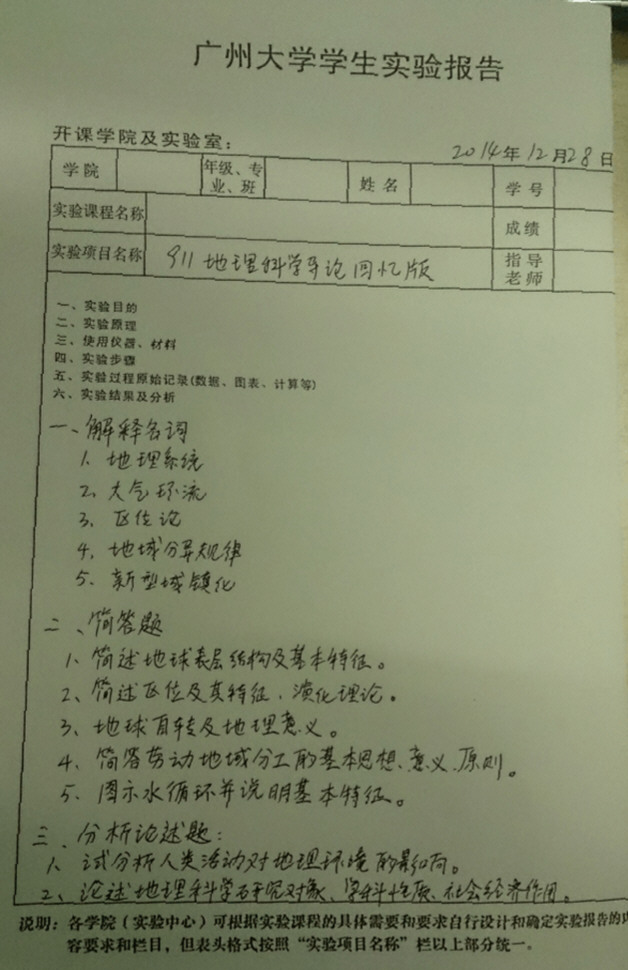 广州大学学生实验报告
开课学院及实验室：
2014年12月28日
学院 年级、专业、班 姓名 学号
实验课程名称 成绩
实验项目名称 911地理科学导论回忆版 指导老师
一、实验目的
二、实验原理
三、使用仪器、材料
四、实验步骤
五、实验过程原始记录(数据、图表、计算等)
六、实验结果及分析
一、解释名词
1、地理系统
2、大气环流
3、区位论
4、地域分异规律
5、新型城镇化
二、简答题
1、简述地球表层结构及基本特征。
2、简述区位及其特征、演化理论。
3、地球自转及地理意义。
4、简答劳动地域分工的基本思想、意义、原则。
5、图示水循环并说明基本特征。
三、分析论述题：
1、试分析人类活动对地理环境的影响。
2、论述地理科学研究对象、学科性质、社会经济作用。
说明：各学院（实验中心）可根据实验课程的具体需要和要求自行设计和确定实验报告的内
容要求和栏目，但表头格式按照“实验项目名称”栏以上部分统一。